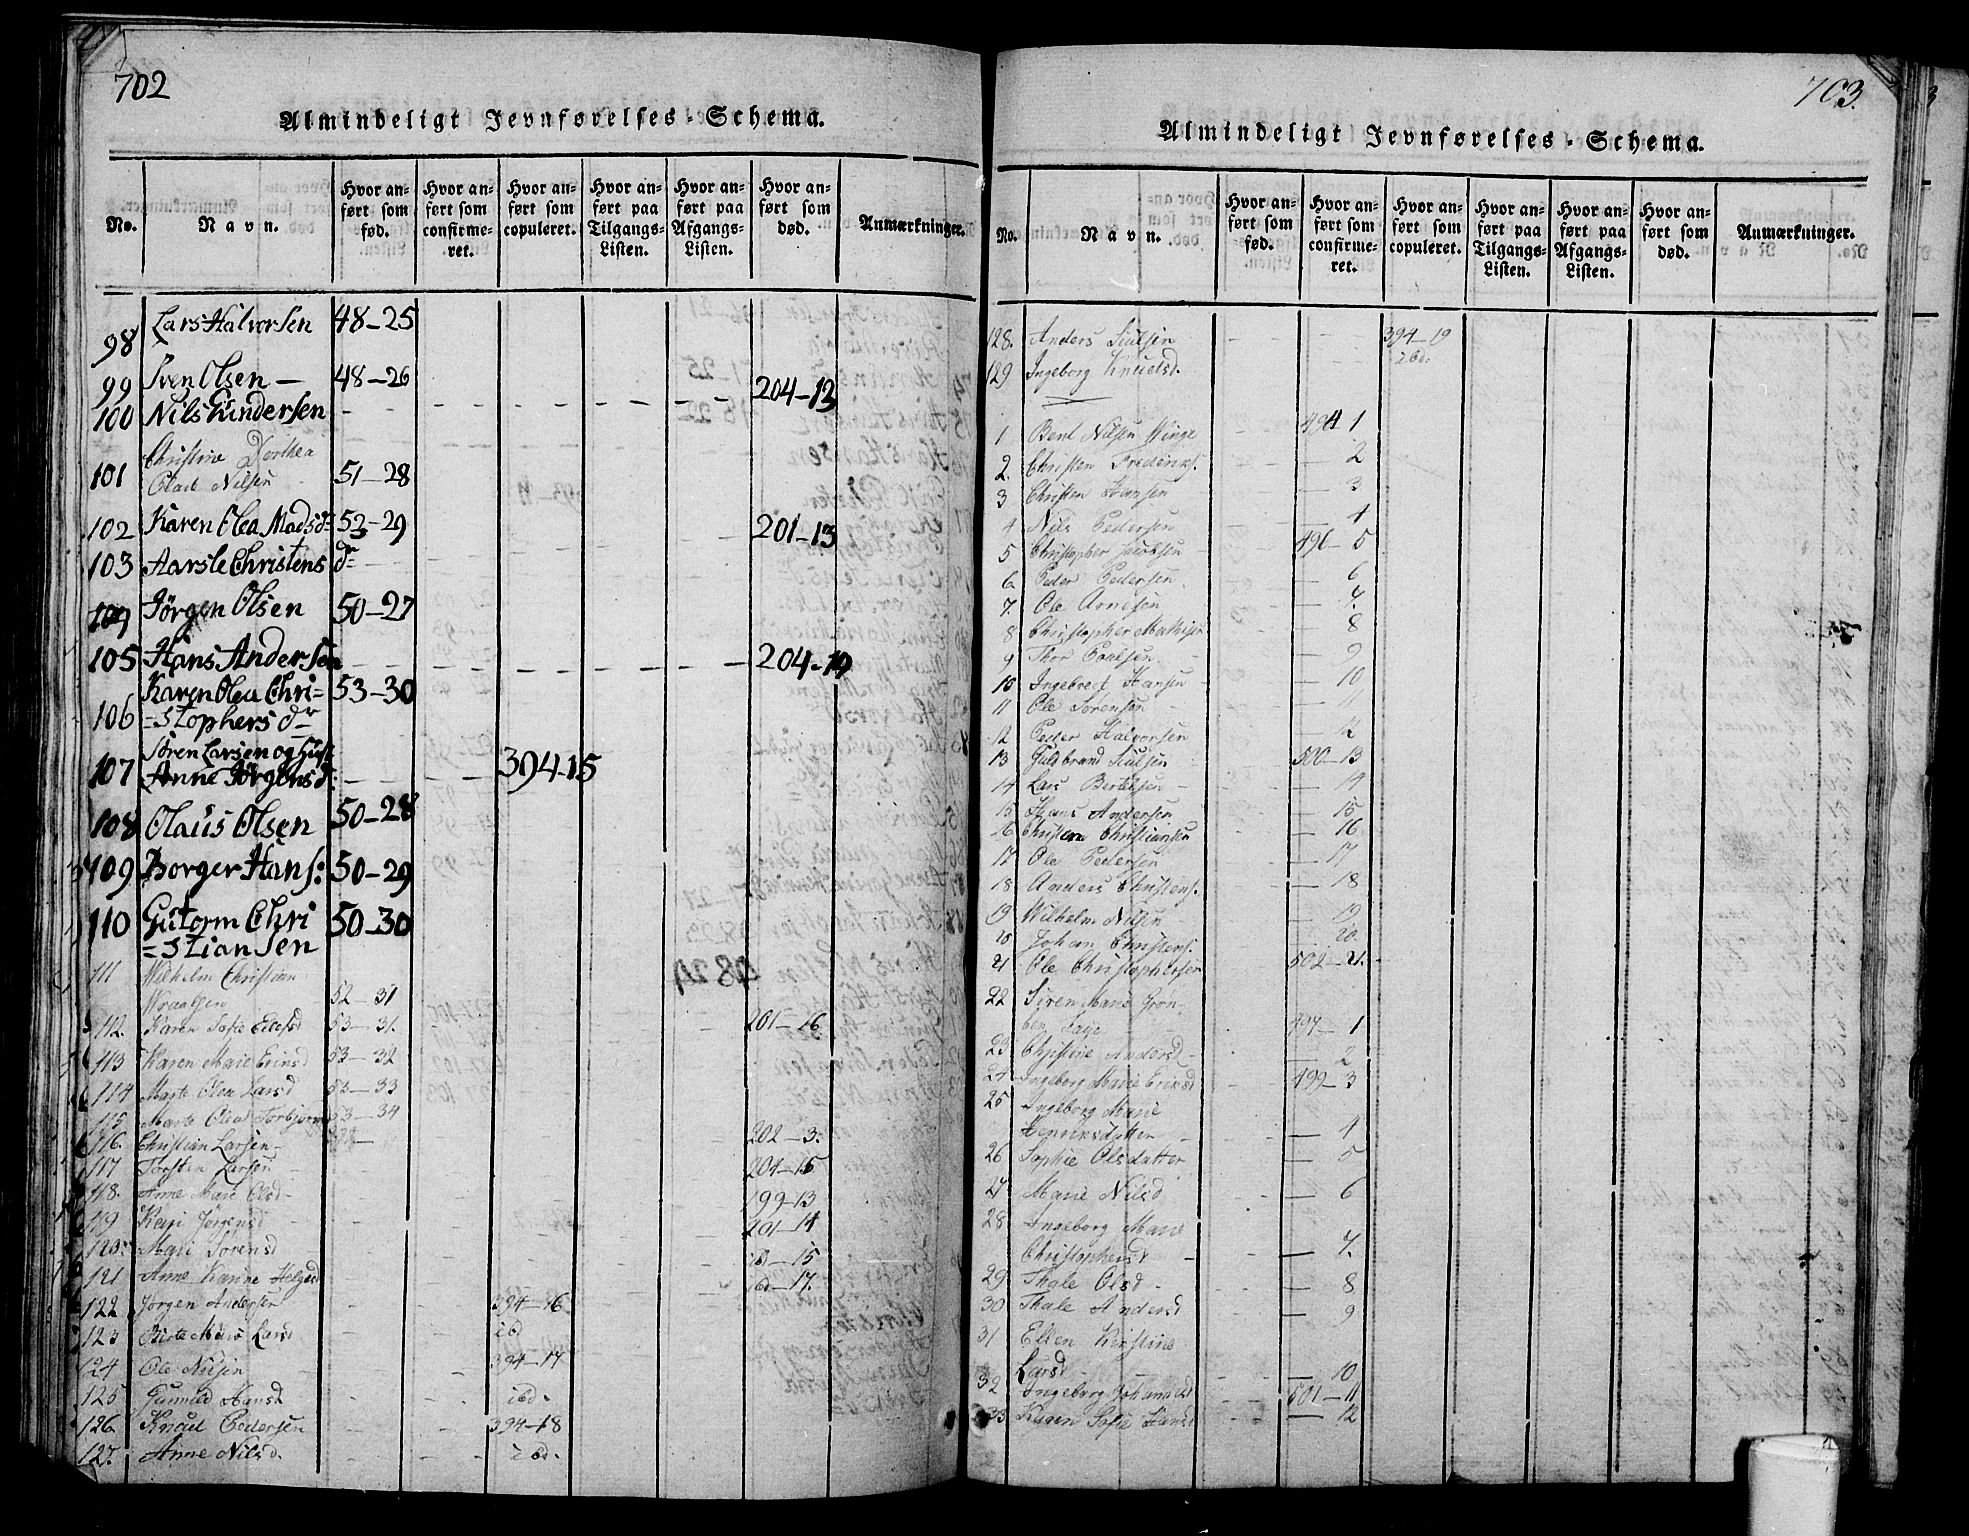 702
Almindeligt Jevnførelses-Schema.
No. Navn. Hvor anført som fød. Hvor anført som confirmeret. Hvor anført som copuleret. Hvor anført paa Tilgangs-Listen. Hvor anført paa Afgangs-Listen. Hvor anført som død. Anmærkninger.
98 Lars Halvorsen 48-25
99 Sven Olsen — 48-26
100 Nils Gundersen 204-13
Christine Dorthea
101 Nilsen 51-28
102 Karen Olea Madsdr 53-29
103 Aarsle Christensdr 201-13
104 Jörgen Olsen 50-27
105 Hans Andersen 204-14
Karen Olea Chri= 53-30
106 =stophersdr
Sören Larsen og Hust
107 Anne Jörgensdr 394-15
108 Olaus Olsen 50-28
109 Borger Hans: 50-29
110 Gutorm Chri 50-30
=stiansen
111 Wilhelm Christian
52-31
112. Karen Sofie 53-31.
201-16
113 Karen Marie Erinsd 53-32
114 Marte Olea Larsd 53-33
115 Marte Olea Torbjørns 53-34
116. Christian Larsen 202-3.
117 Torsten Larsen 204-15
118. Anne Marie Olsd 199-13
119 Kari Jørgensd 201-14
120. Mari Sörensd ibd-15
121 Anne Hanne Helgesd ibd-17.
122 Jørgen Andersen 394-16
123 Birte Marie Larsd ibd
124 Ole Nilsen 394-17
125 Gunnild Hansd ibd.
126. Knud Pedersen 394-18
127. Anne Nilsd. ibd.
703.
Almindeligt Jevnførelses-Schema.
No. Navn. Hvor anført som fød. Hvor anført som confirmeret. Hvor anført som copuleret. Hvor anført paa Tilgangs-Listen. Hvor anført paa Afgangs-Listen. Hvor anført som død. Anmærkninger.
128. Anders Siulsen 394-19
129 Ingeborg Knuelsd. ibd.
1 Bent Nilsen Winge 494 1
2. Christen Frederiks. 2
3 Christen Hansen — 3
4 Nils Pedersen — 4
5 Christopher Jacobsen 496-5
6 Peder Pedersen 6
7. Ole Arnesen — 7.
8 Christopher Mathisen — 8
9 Thor Poulsen — 9
10 Ingebret Hansen — 10
11 Ole Sørensen — 11
12 Peder Halvorsen — 12
13 Guldbrand Siulsen 500-13
14 Lars Bertelsen — 14
15 Hans Andersen — 15
16 Christen Christiansen — 16
17 Ole Pedersen — 17
18. Anders Christens. — 18
19 Wilhelm Nilsen — 19
20 Johan Christens. — 20.
21 Ole Christophersen 502-21.
22 Siren Marie Gron-
497-1
23 Christine Andersd — 2
24 Ingeborg Marie Erinsd 499-3
25 Ingeborg Marie
Henrinsdatter — 4
26 Sophie Olsdatter — 5
27 Marie Nilsd — 6
28 Ingeborg Marie
Christophersd — 7.
29 Thale Olsd — 8
30 Thale Andersd — 9
31 Ellen Kirstine
Larsd — 10
32 Ingeborg Johannesd 501-11
33 Karen Sofie Hansd — 12